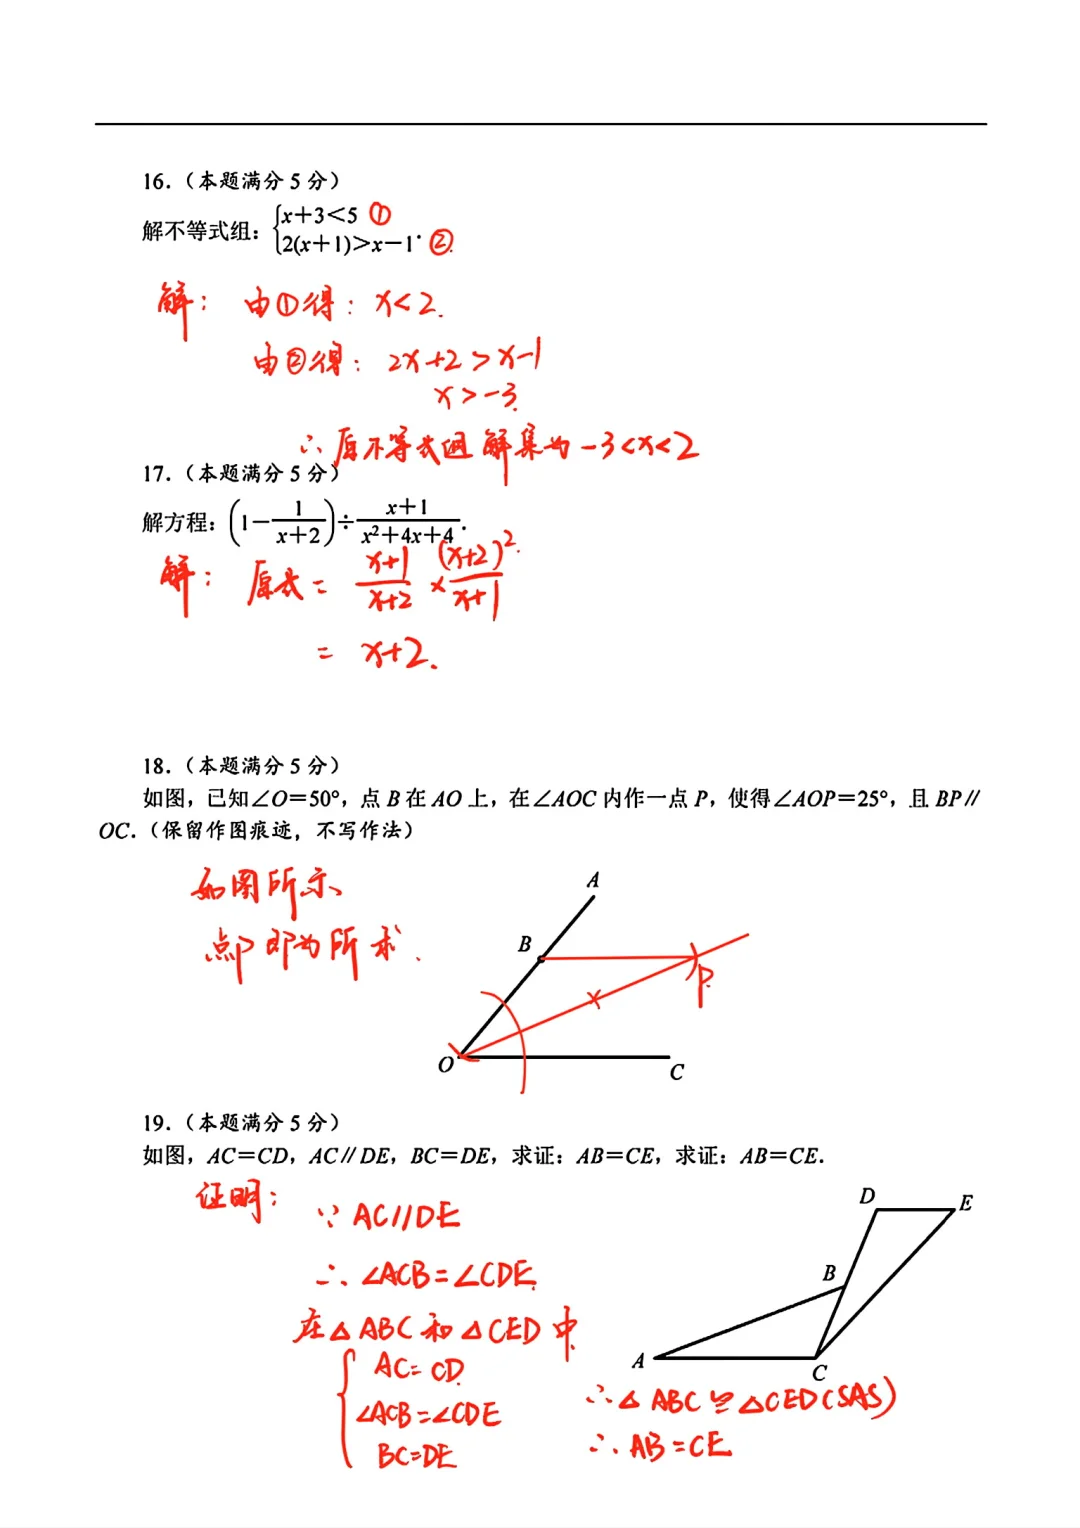 16.（本题满分 5 分）
解不等式组：{x+3<5 ①
2(x+1)>x−1. ②
解： 由①得：x<2.
由②得：2x+2>x−1
x>−3.
∴原不等式组解集为−3<x<2
17.（本题满分 5 分）
解方程：(1−1/(x+2))÷(x+1)/(x²+4x+4).
解： 原式= (x+1)/(x+2) × (x+2)²/(x+1)
= x+2.
18.（本题满分 5 分）
如图，已知∠O=50°，点 B 在 AO 上，在∠AOC 内作一点 P，使得∠AOP=25°，且 BP∥
OC.（保留作图痕迹，不写作法）
如图所示
点P即为所求.
A
B
P
O
C
19.（本题满分 5 分）
如图，AC=CD，AC∥DE，BC=DE，求证：AB=CE，求证：AB=CE.
证明：
∵AC//DE
∴∠ACB=∠CDE
在△ABC和△CED中
{AC=CD
∠ACB=∠CDE
BC=DE
D
E
B
A
C
∴△ABC≌△CED(SAS)
∴AB=CE